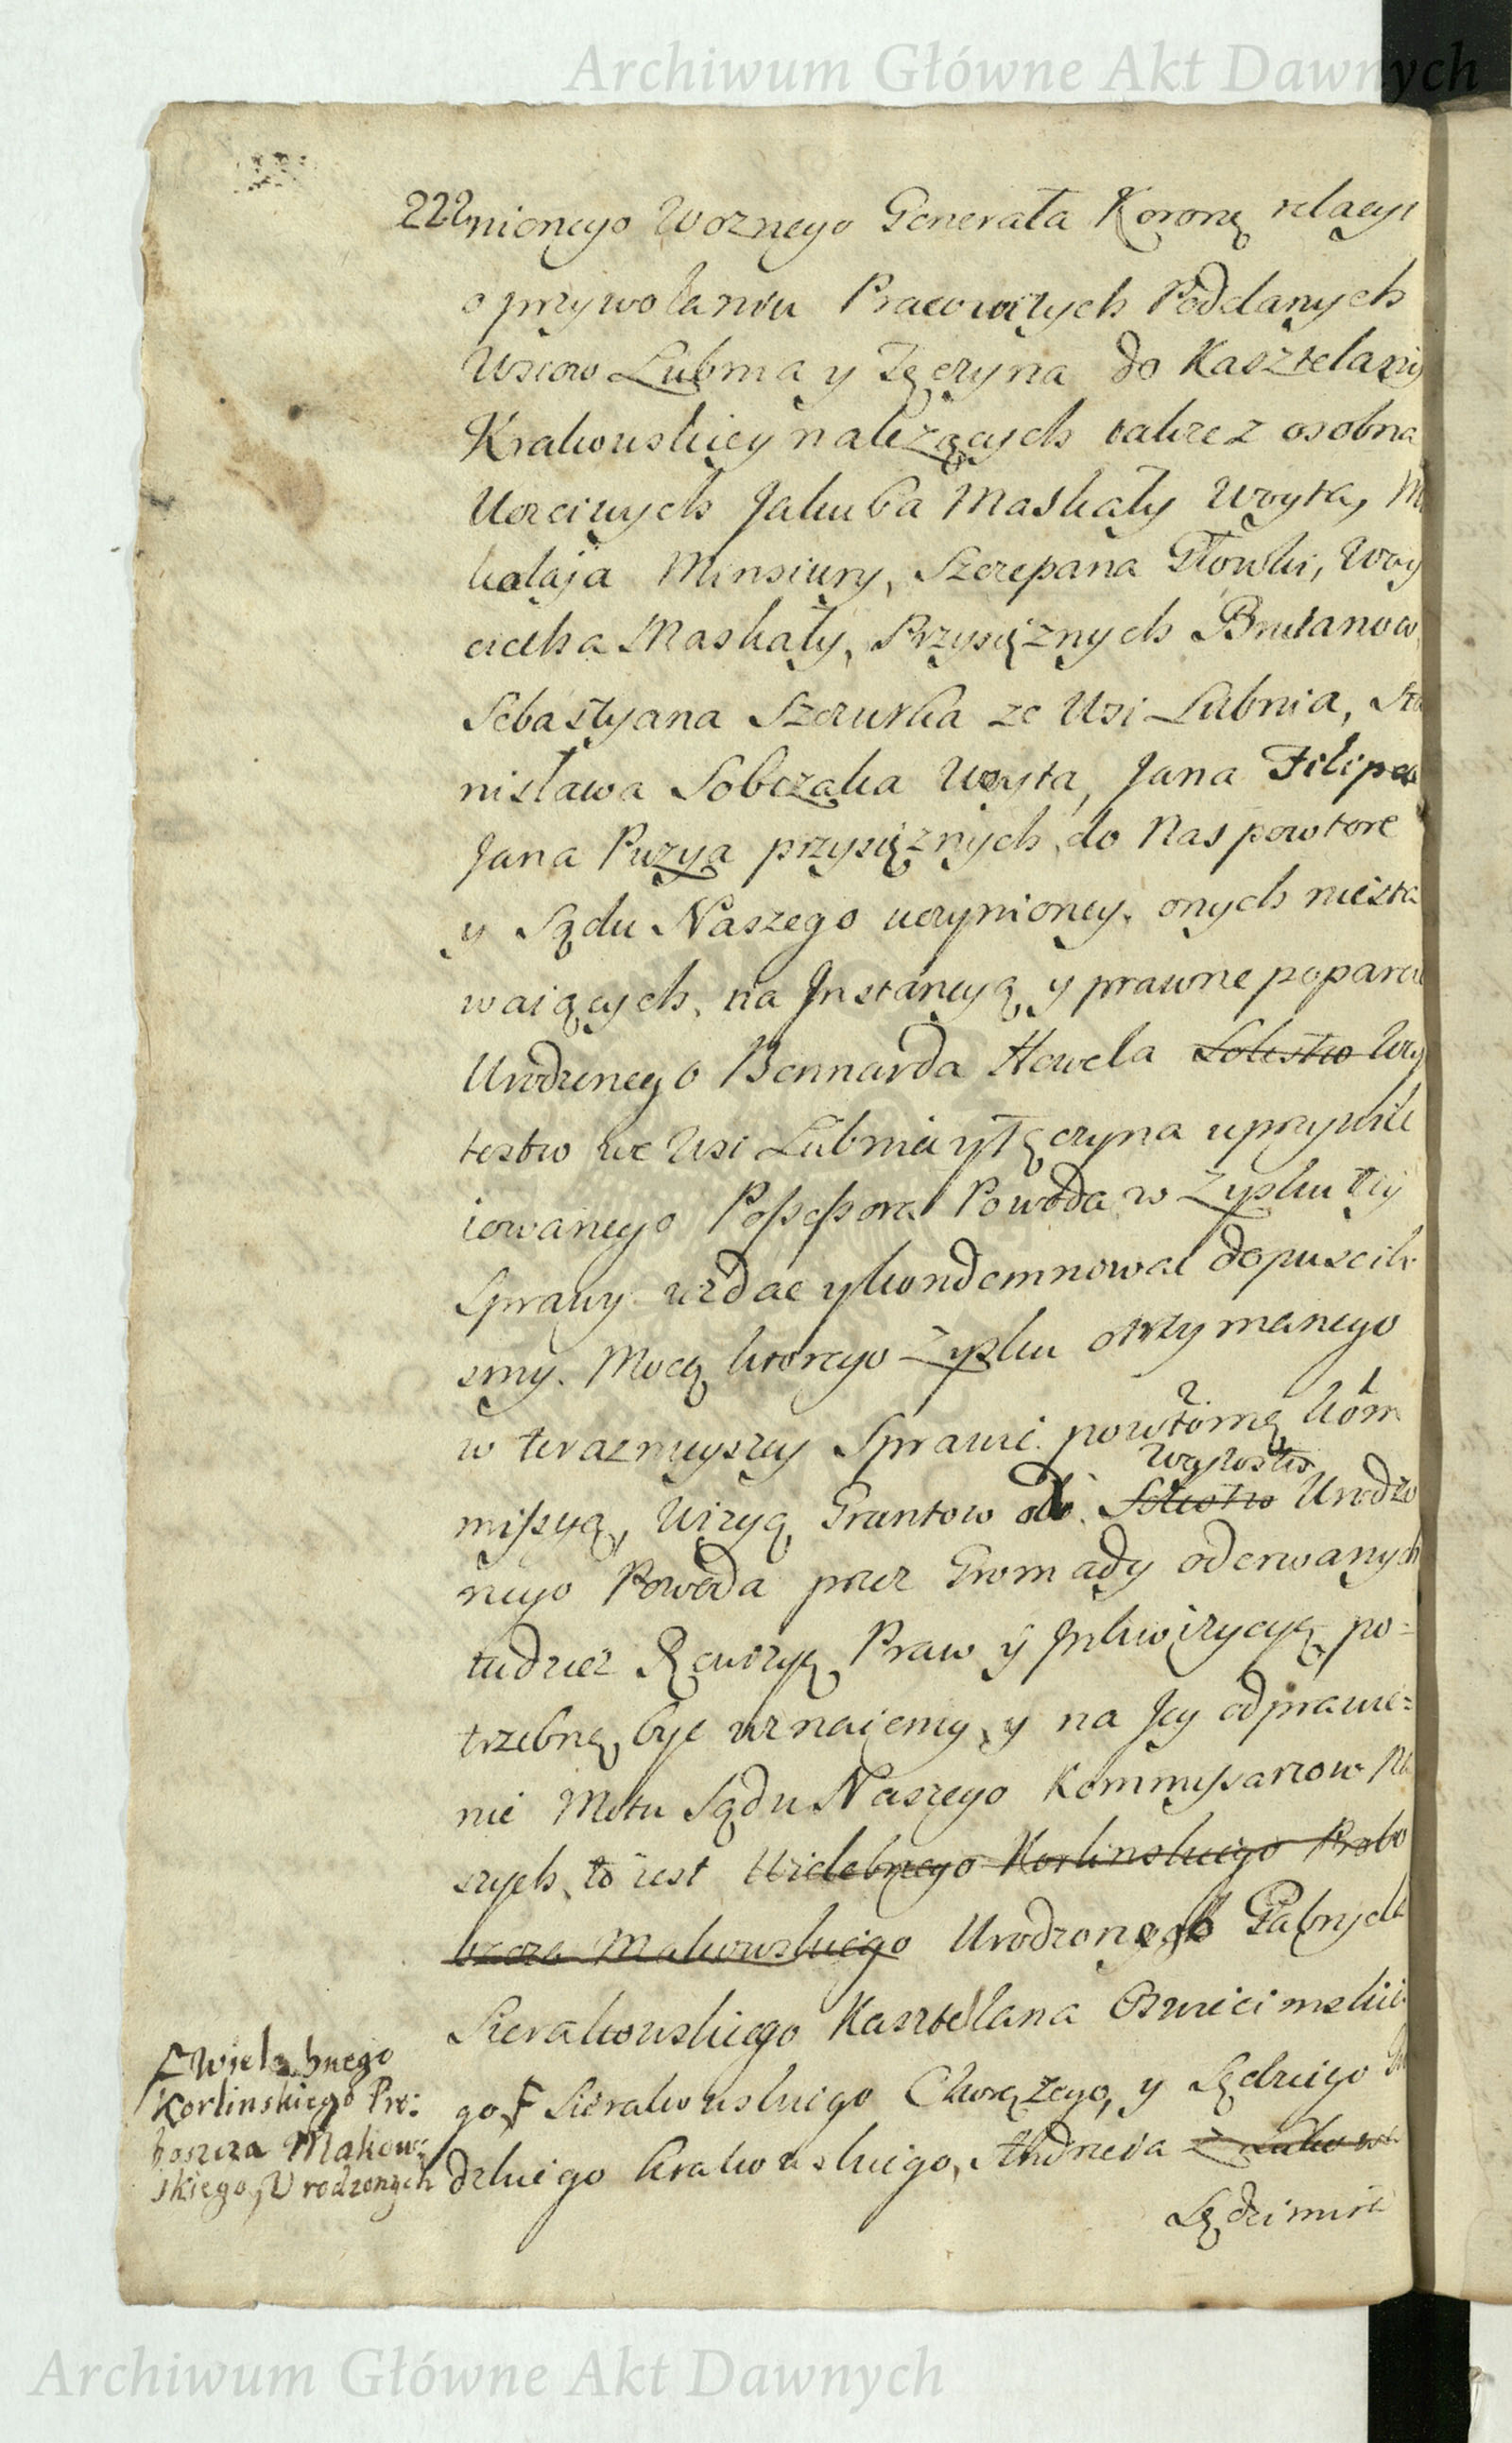 Archiwum Główne Akt Dawnych
222
nionego Woznego Generała Koronę relacyi
o przywołaniu Pracowitych Poddanych
Wsiow Lubnia y Tęczyna do Kasztelanij
Krakowskiey należących także z osobna
Uczciwych Jakuba Maskały Woyta, Mi
kołaja Minsiury, Szczepana Głowki, Woy
ciecha Maskały, Przysiężnych Brutanow
Sebastyana Szczurka ze Wsi Lubnia, Sta
nisława Sobczaka Woyta, Jana Filipca
Jana Puzya przysiężnych do Nas powtore
y Sądu Naszego uczynioney, onych niesta
waiących, na Instancyą y prawne poparcie
Urodzonego Bennarda Hewela Soltstwo Woy
tostwo we Wsi Lubnia y Tęczyna uprzywile
iowanego Possessora Powoda w Zysku tey
Sprawy wzdac y kondemnowac dopuscili
smy. Mocą ktorego Zysku otrzymanego
2 1
w teraznieyszey Sprawie powtórną kóm
Woytostwo
missyą, Wizyą Gruntow do Soltstwo Urodzo
nego Powoda przez Gromady oderwanych
tudziez Rewizyę Praw y Inkwizycyę po=
trzebną byc uznaiemy, y na Jey odprawie=
nie Mctu Sądu Naszego Kommyssarzow Na
szych, to iest Wielebnego Korlinskiego Probo
bszcza Makowskiego Urodzonego Gabryela
Sierakowskiego Kasztelana Oswiecimskie
go F Sierakowskiego Chorążego, y Sędziego
dzkiego Krakowskiego, Andrzeia
Sędzimira
F Wielebnego
Korlinskiego Pro:
boszcza Makow
skiego, Urodzonych
Archiwum Główne Akt Dawnych